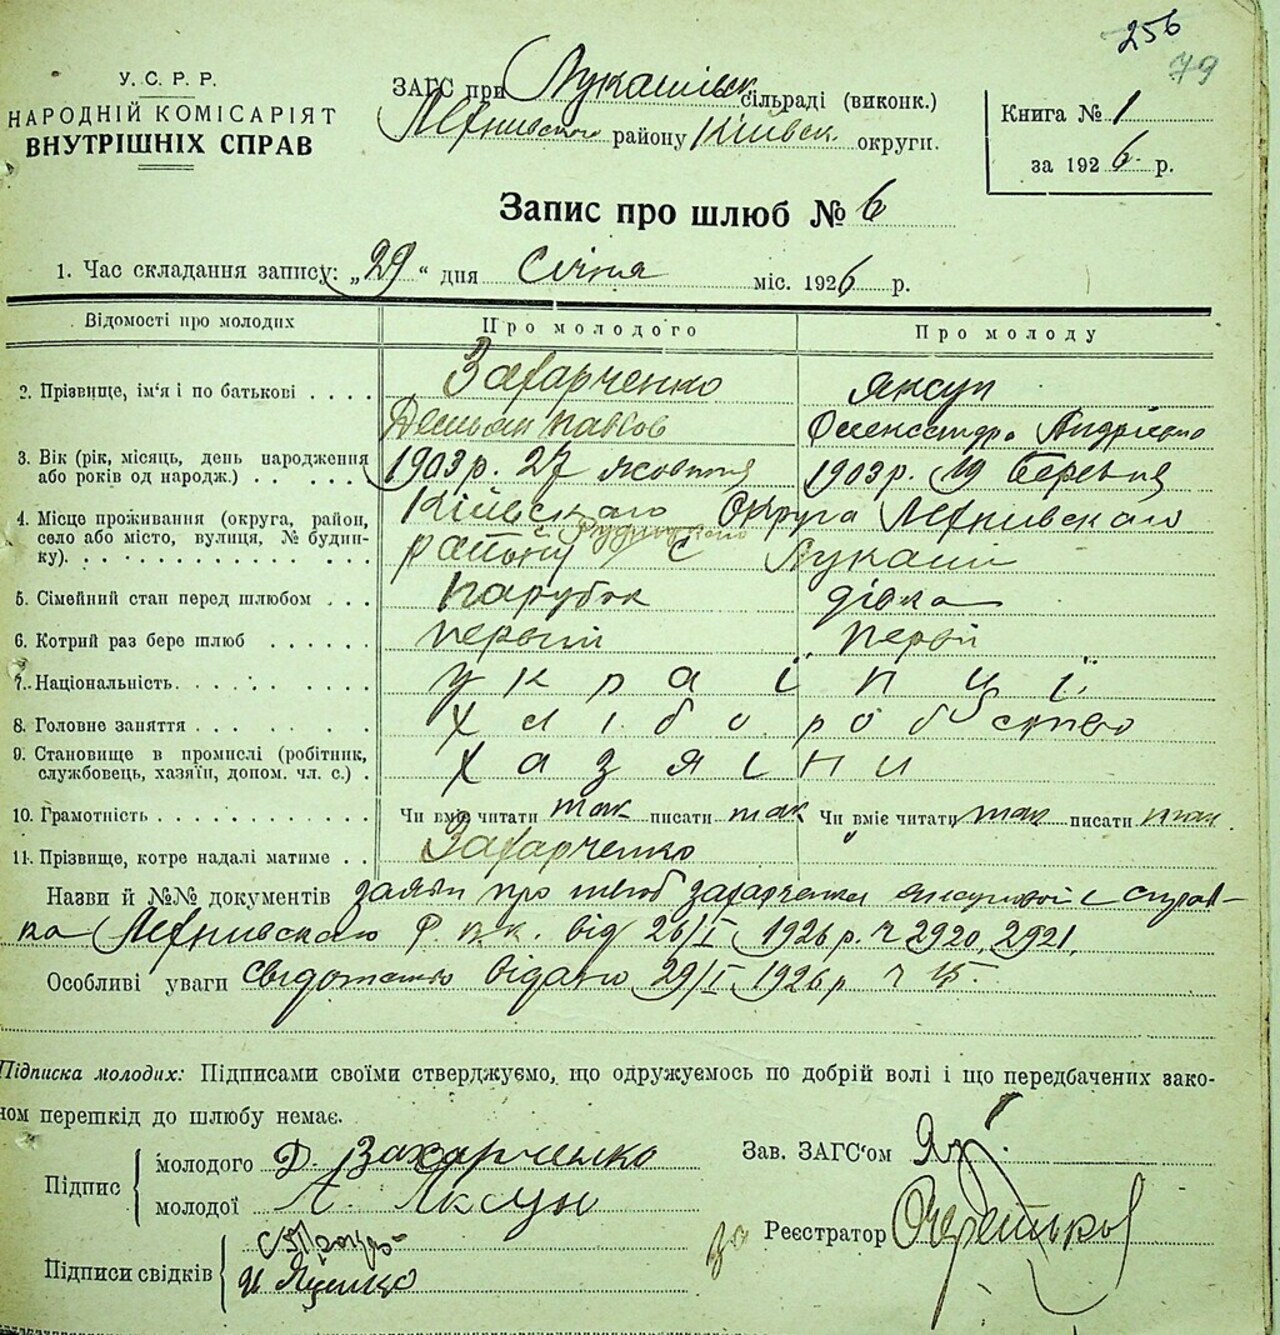 256
79
У. С. Р. Р.
НАРОДНІЙ КОМІСАРІЯТ
ВНУТРІШНІХ СПРАВ
ЗАГС при Лукашівськ сільраді (виконк.)
району Київськ. округи.
Книга № 1
за 1926 р.
Запис про шлюб № 6
1. Час складання запису: „29“ дня Січня міс. 1926 р.
Відомості про молодих Про молодого Про молоду
2. Прізвище, ім'я і по батькові . . . . Захарченко Яксун
Демьян Павлов Олександра Андріївна
3. Вік (рік, місяць, день народження
або років од народж.) . . . . . . 1903 р. 27 жовтня 1903 р. 19 березня
4. Місце проживання (округа, район,
село або місто, вулиця, № будин-
ку). . . . . . . . . . . . . . .
Київского Округа
району С Лукаші
5. Сімейний стан перед шлюбом . . . парубок дівка
6. Котрий раз бере шлюб . . . . . . первий первий
7. Національність. . . . . . . . . українці
8. Головне заняття . . . . . . . . хліборобство
9. Становище в промислі (робітник,
службовець, хазяїн, допом. чл. с.) . хазяїни
10. Грамотність . . . . . . . . . . . Чи вміє читати так писати так Чи вміє читати так писати так
11. Прізвище, котре надалі матиме . . Захарченко
Назви й №№ документів заяви про шлюб Захарченка справ-
ка Р. В. К. від 26/I 1926 р. ч 2920, 2921,
Особливі уваги Свідоцтво видано 29/I 1926 р ч 15.
Підписка молодих: Підписами своїми стверджуємо, що одружуємось по добрій волі і що передбачених зако-
ном перешкід до шлюбу немає.
Підпис
молодого Д. Захарченко
молодої А. Яксун
Зав. ЗАГС'ом
за Реєстратор
Підписи свідків